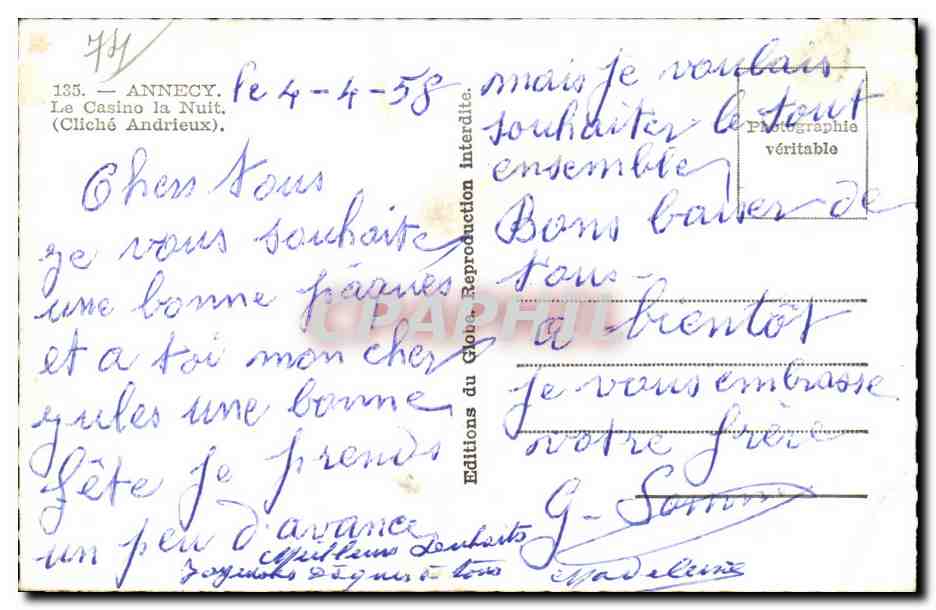 74
135. — ANNECY.
Le Casino la Nuit.
(Cliché Andrieux).
le 4-4-58
Chers tous
je vous souhaite
une bonne pâques
et a toi mon cher
jules une bonne
fête je prends
un peu d'avance
mais je voulais
souhaiter le tout
ensemble
Bons baiser de
tous-
a bientôt
je vous embrasse
votre frère
G- Somm
Meilleurs souhaits
Joyeuses Pâques à tous
Madeleine
Editions du Globe. Reproduction interdite.
Photographie
véritable
CPAPHIL